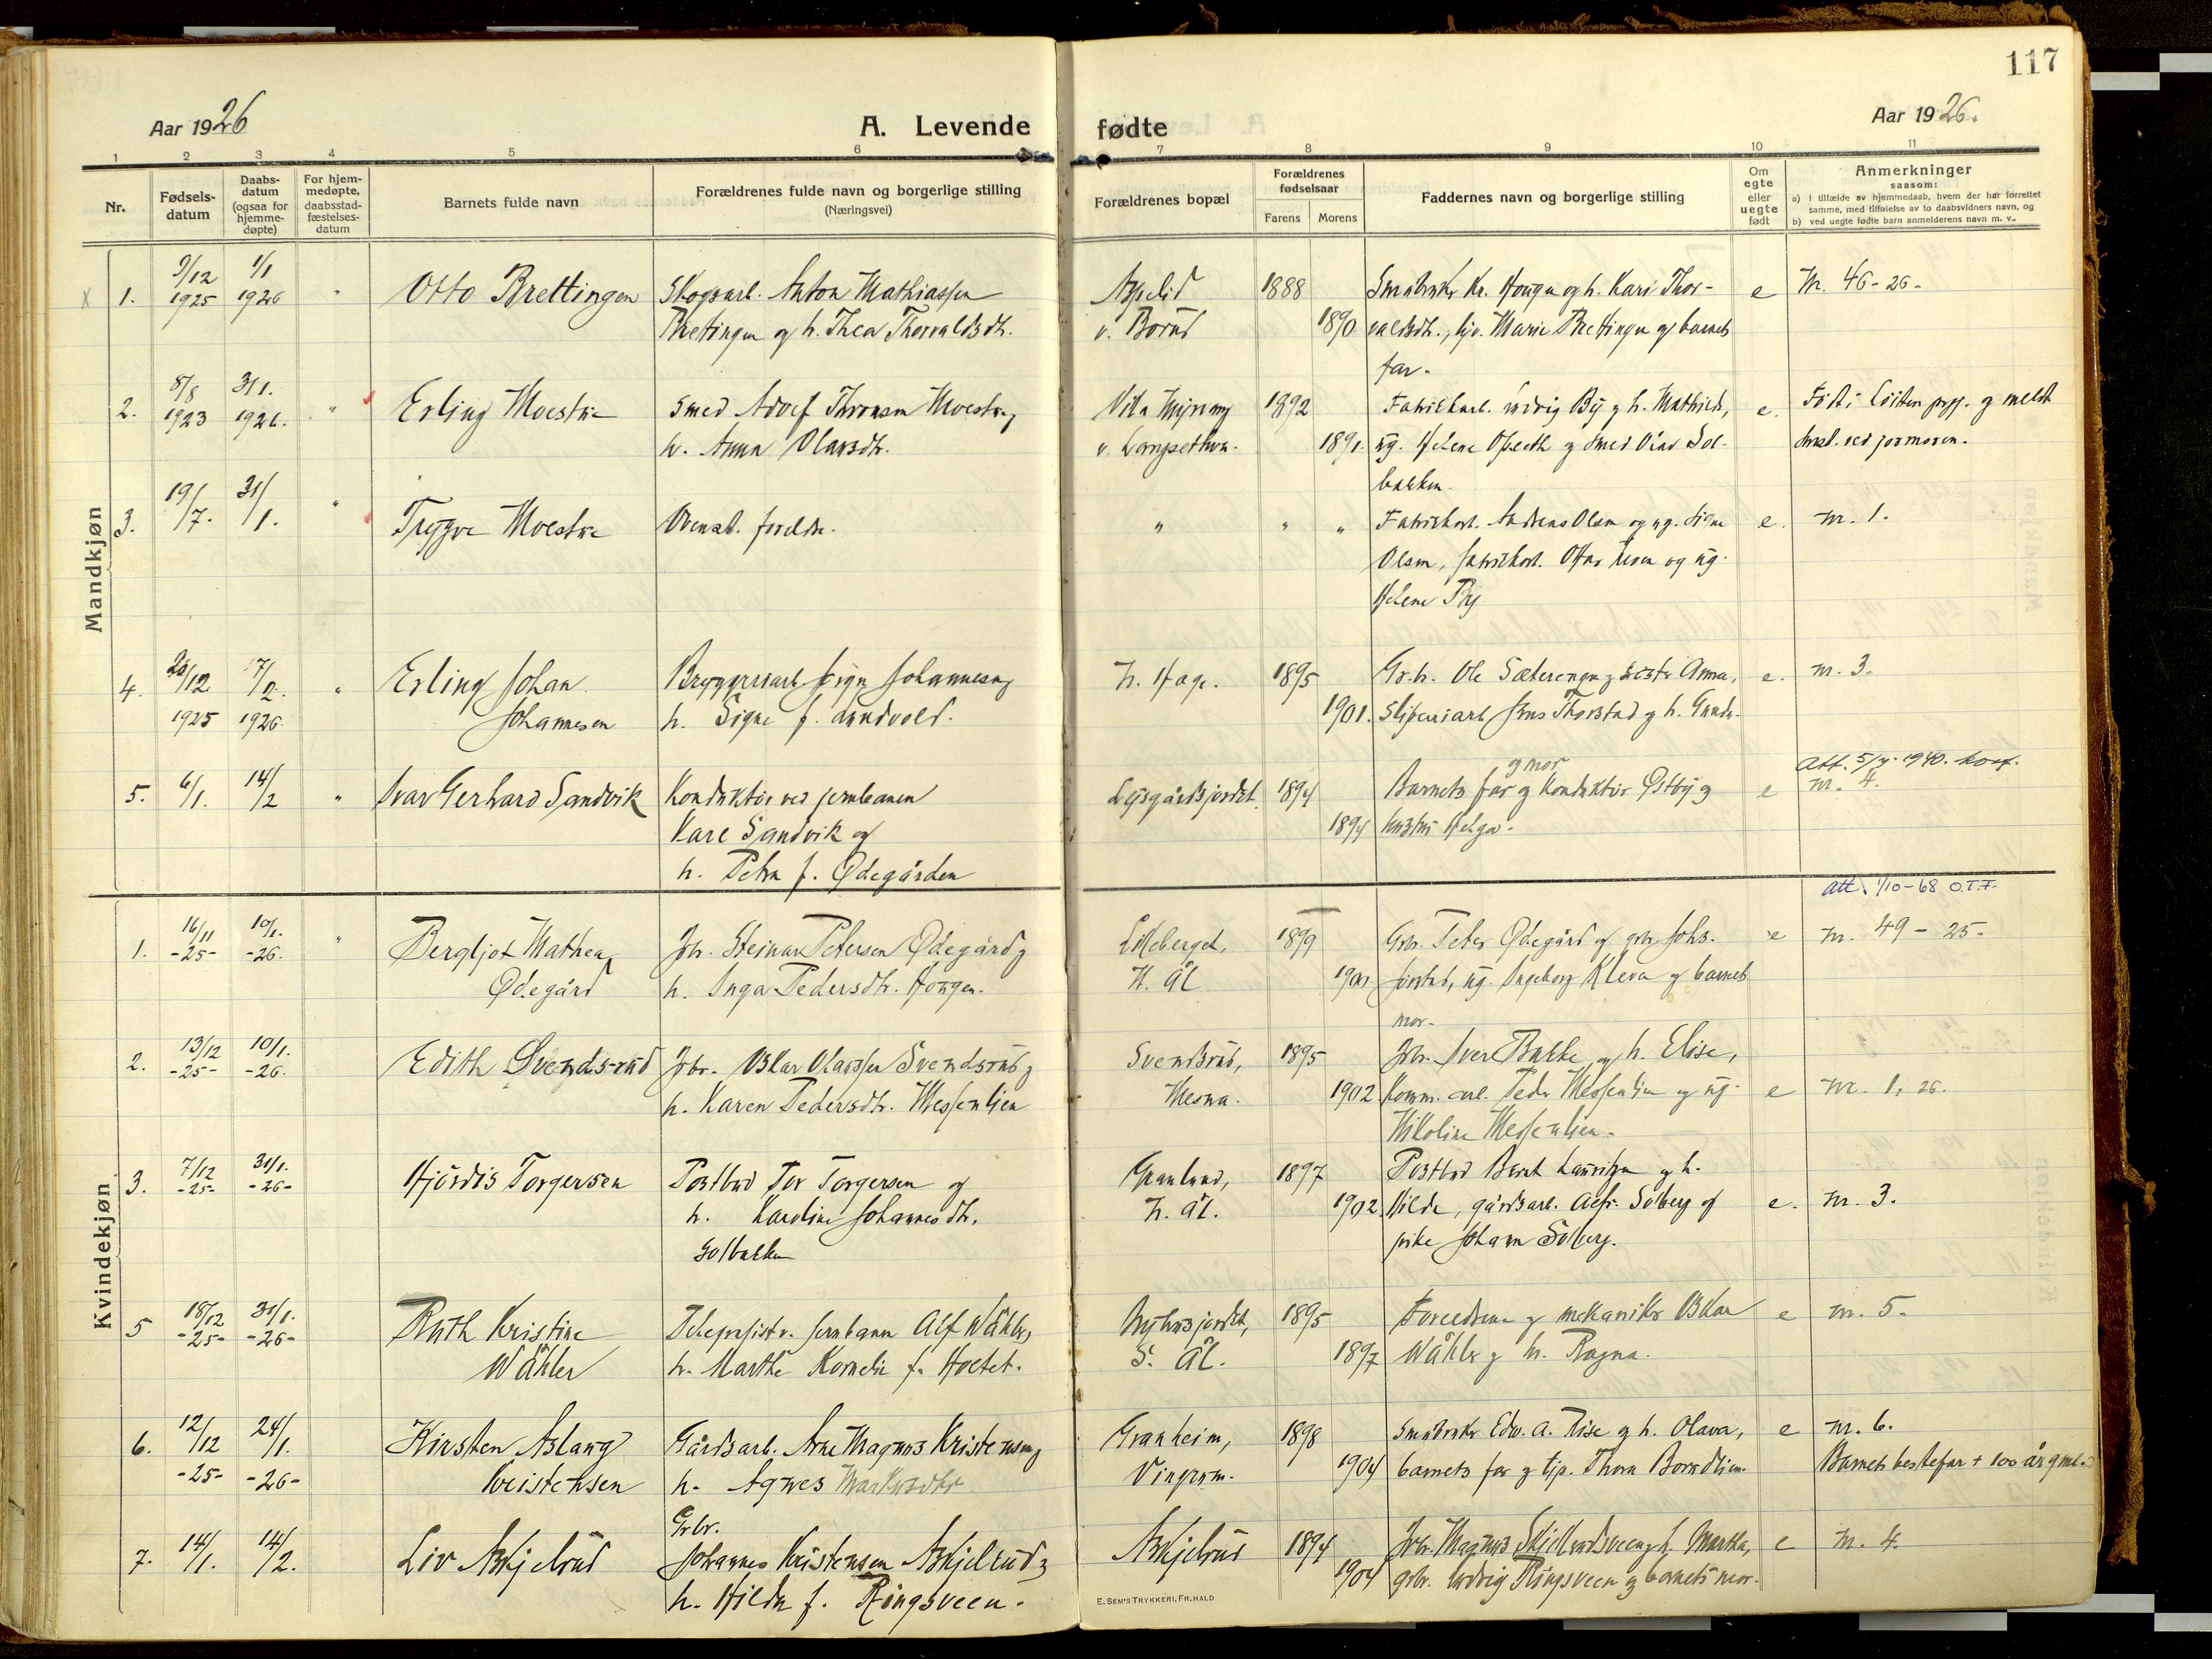 117
Aar 1926
A. Levende
fødte
Aar 1926.
1 2 3 4 5 6 7 8 9 10 11
Nr.
Fødsels-
datum
Daabs-
datum
(ogsaa for
hjemme-
døpte)
For hjem-
medøpte,
daabsstad-
fæstelses-
datum
Barnets fulde navn
Forældrenes fulde navn og borgerlige stilling
(Næringsvei)
Forældrenes bopæl
Forældrenes
fødselsaar
Farens Morens
Faddernes navn og borgerlige stilling
Om
egte
eller
uegte
født
Anmerkninger
saasom:
a) i tilfælde av hjemmedaab, hvem der har forrettet
samme, med tilføielse av to daabsvidners navn, og
b) ved uegte fødte barn anmelderens navn m. v..
Mandkjøn
X 1. 9/12 1925 1/1 1926 " Otto Brettingen
Skogsarb. Anton Mathiassen
Brettingen og h. Thea Thorvaldsdtr.
v. Borud
1888
1890
Småbruker Kr. Haugen og h. Kari Thor-
valdsdtr., Marie Brettingen og barnets
far.
e
Nr. 46-26-
2. 8/8 1923 31/1. 1926. " Erling Moestue
Smed Adolf Thronsen Moestue og
h. Anna Olausdtr.
1892
1891.
Fabrikkarb. Ludvig By og h. Mathilde,
ug. Helene og smed Olav Sol-
bakken.
e.
Født i Løiten prgj. og meldt
3. 19/7. 31/1. " Trygve Moestue
Ovenst. foreldre.
" " "
Fabrikarb. Andreas Olsen og ug. Signe
Olsen, fabrikarb. Ottar og ug.
Helene By
e.
nr. 1.
4. 26/12 1925 7/2. 1926. " Erling Johan
Johannesen
Bryggeriarb. Johannesen og
h. Signe f. Lundvold.
N. Hage.
1895
1901.
Gr.br. Ole Sæterengen og Anna,
Sliperiarb. Jens Thorstad og h.
e.
nr. 3.
5. 6/1. 14/2 " Ivar Gerhard Sandvik
Konduktør ved jernbanen
Karl Sandvik og
h. Petra f. Ødegården
Lysgårdsjordet.
1894
1894
og mor
Barnets far og Konduktør Østby og
hustru Helga.
e
Att. 5/4. 1940. konf.
nr. 4.
Kvindekjøn
1. 16/11 -25- 10/1. -26. " Bergljot Mathea
Ødegård
Gbr. Steinar Petersen Ødegård og
h. Inga Pedersdtr. Haugen.
Lilleberget,
N. Ål
1899
1901
Grbr. Peter Ødegård og grbr. Johs.
Jørstad, ug. Ingeborg Kleva og barnets
mor.
e
att. 1/10-68 O.T.F.
nr. 49-25-
2. 13/12 -25- 10/1. -26. Edith Svendsrud
Gbr. Oskar Olaussen Svendsrud og
h. Karen Pedersdtr. Messenlien
Svendsrud,
Mesna.
1895
1902
Gbr. Iver Bakke og h. Elise,
Komm. arb. Peder Messenlien og ug.
Nikoline Messenlien.
e
nr. 1, 26.
3. 7/12 -25- 31/1. -26- Hjørdis Torgersen
Postbud Tor Torgersen og
h. Karoline Johannesdtr.
Solbakken
Granlund,
N. Ål.
1897
1902.
Postbud Bernt Lauritzen og h.
Hilda, gårdsarb. Alfr. Solberg og
pike Johanne Solberg.
e.
nr. 3.
5 18/12 -25- 31/1. -26- Ruth Kristine
Wåhler
Telegrafist v. jernbanen Alf Wåhler,
h. Marthe Kornelie f. Holtet.
S. Ål.
1895
1897
Foreldrene og mekaniker Oskar
Wåhler og h. Ragna.
e
nr. 5.
6. 12/12 -25- 24/1. -26- Kirsten Aslaug
Kristensen
Gårdsarb. Arne Magnus Kristensen og
h. Agnes Markusdtr
Granheim,
Vingrom.
1898
1904
Småbruker Edv. A. Rise og h. Olava,
barnets far og tjp. Thora
e
nr. 6.
Barnets bestefar + 100 år gml.
7. 14/1. 14/2. Liv Askjelrud
Grbr.
Johannes Kristensen Askjelrud og
h. Hilda f. Ringsveen.
Askjelrud
1894
1904
Gbr. Magnus Skjellerudsveen og h. Martha,
grbr. Ludvig Ringsveen og barnets mor.
e
nr. 4.
E. SEM'S TRYKKERI, FR.HALD